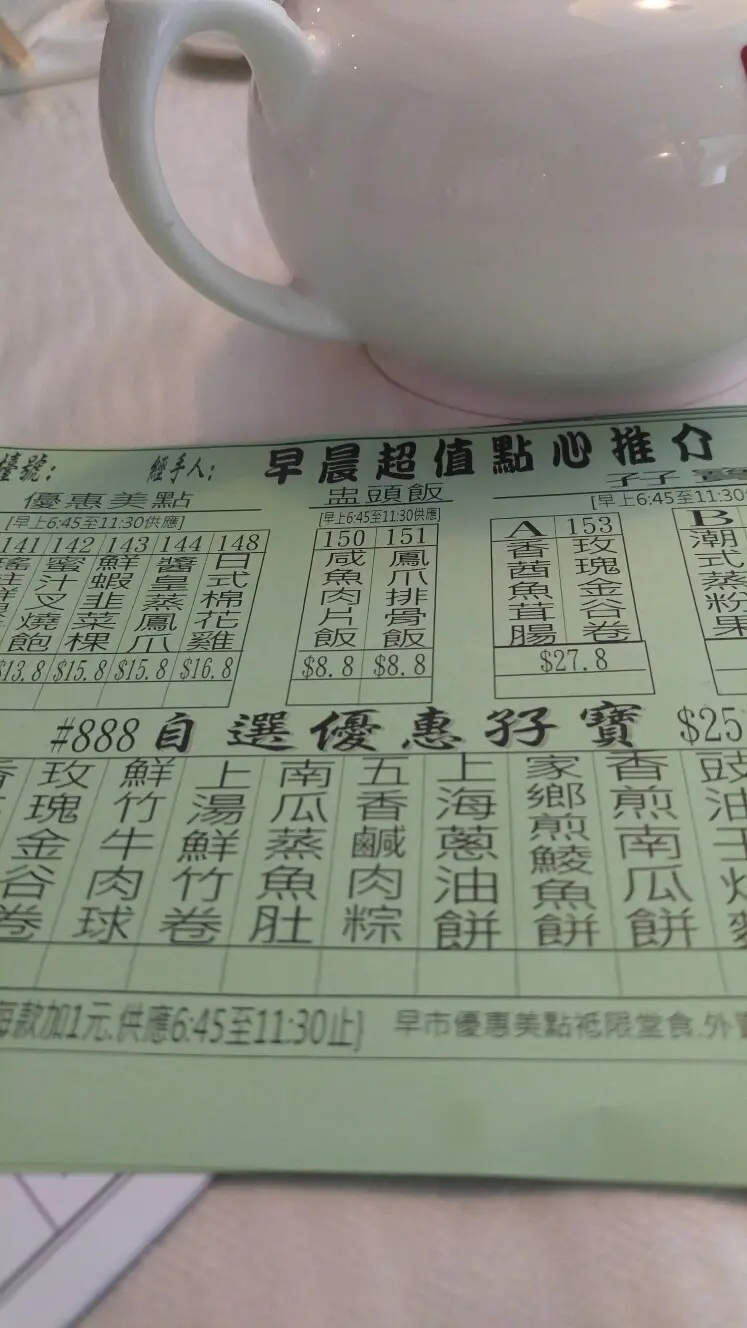 檯號: 經手人: 早晨超值點心推介
優惠美點 盅頭飯 孖寶
[早上6:45至11:30供應] [早上6:45至11:30供應] [早上6:45至11:30
141 142 143 144 148 150 151 A 153 B
蜜汁叉燒飽
鮮蝦韭菜粿
醬皇蒸鳳爪
日式棉花雞
咸魚肉片飯
鳳爪排骨飯
香茜魚茸腸
玫瑰金谷卷
潮式蒸粉果
$13.8 $15.8 $15.8 $16.8 $8.8 $8.8 $27.8
#888 自選優惠孖寶 $25
玫瑰金谷卷
鮮竹牛肉球
上湯鮮竹卷
南瓜蒸魚肚
五香鹹肉粽
上海蔥油餅
家鄉煎鯪魚餅
香煎南瓜餅
豉油王
每款加1元.供應6:45至11:30止} 早市優惠美點祗限堂食.外賣